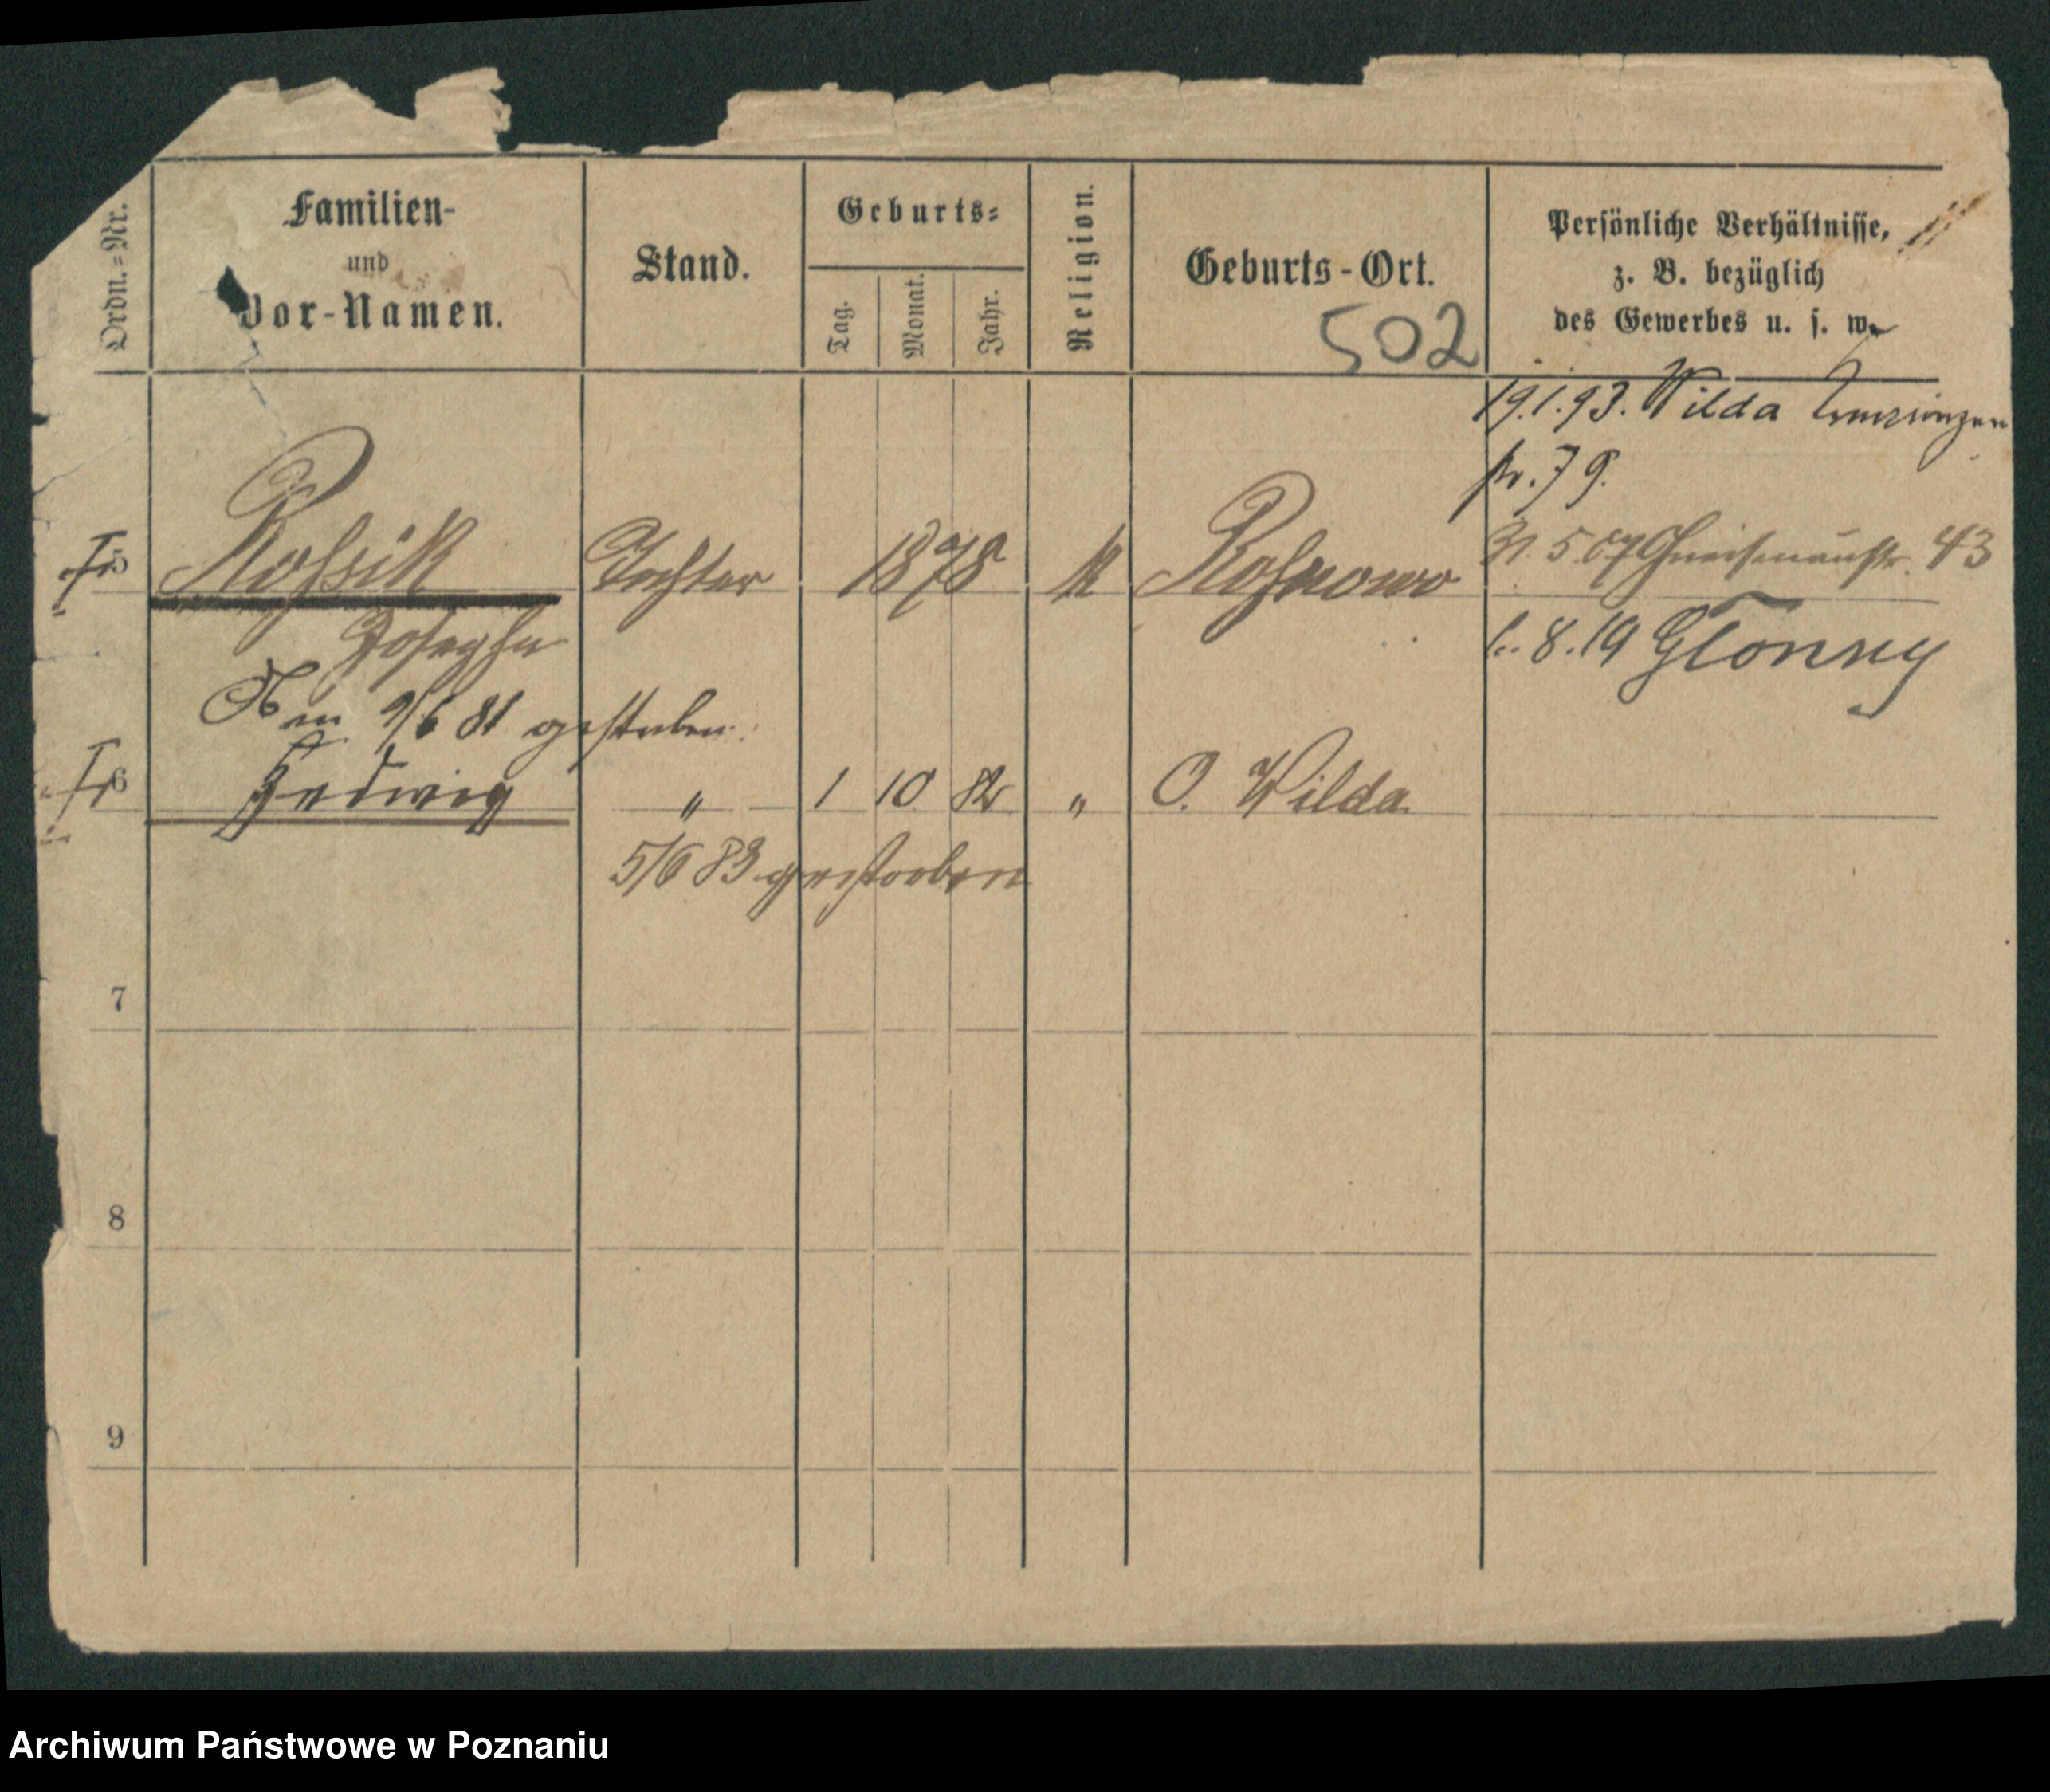 Ordn.=Nr.
Familien-
und
Vor-Namen.
Stand.
Geburts=
Tag.
Monat.
Jahr.
Religion.
Geburts-Ort.
502
Persönliche Verhältnisse,
z. B. bezüglich
des Gewerbes u. s. w.
19.1.93. Wilda
Nr. 79.
5 Tochter 1878 K Rosnowo 31.5.07 Gneisenaustr. 43
Josepha
8.19
Am 9/6 81 gestorben
6 Hedwig " 1 10 82 " O. Wilda
5/6 83 gestorben
7
8
9
Archiwum Państwowe w Poznaniu